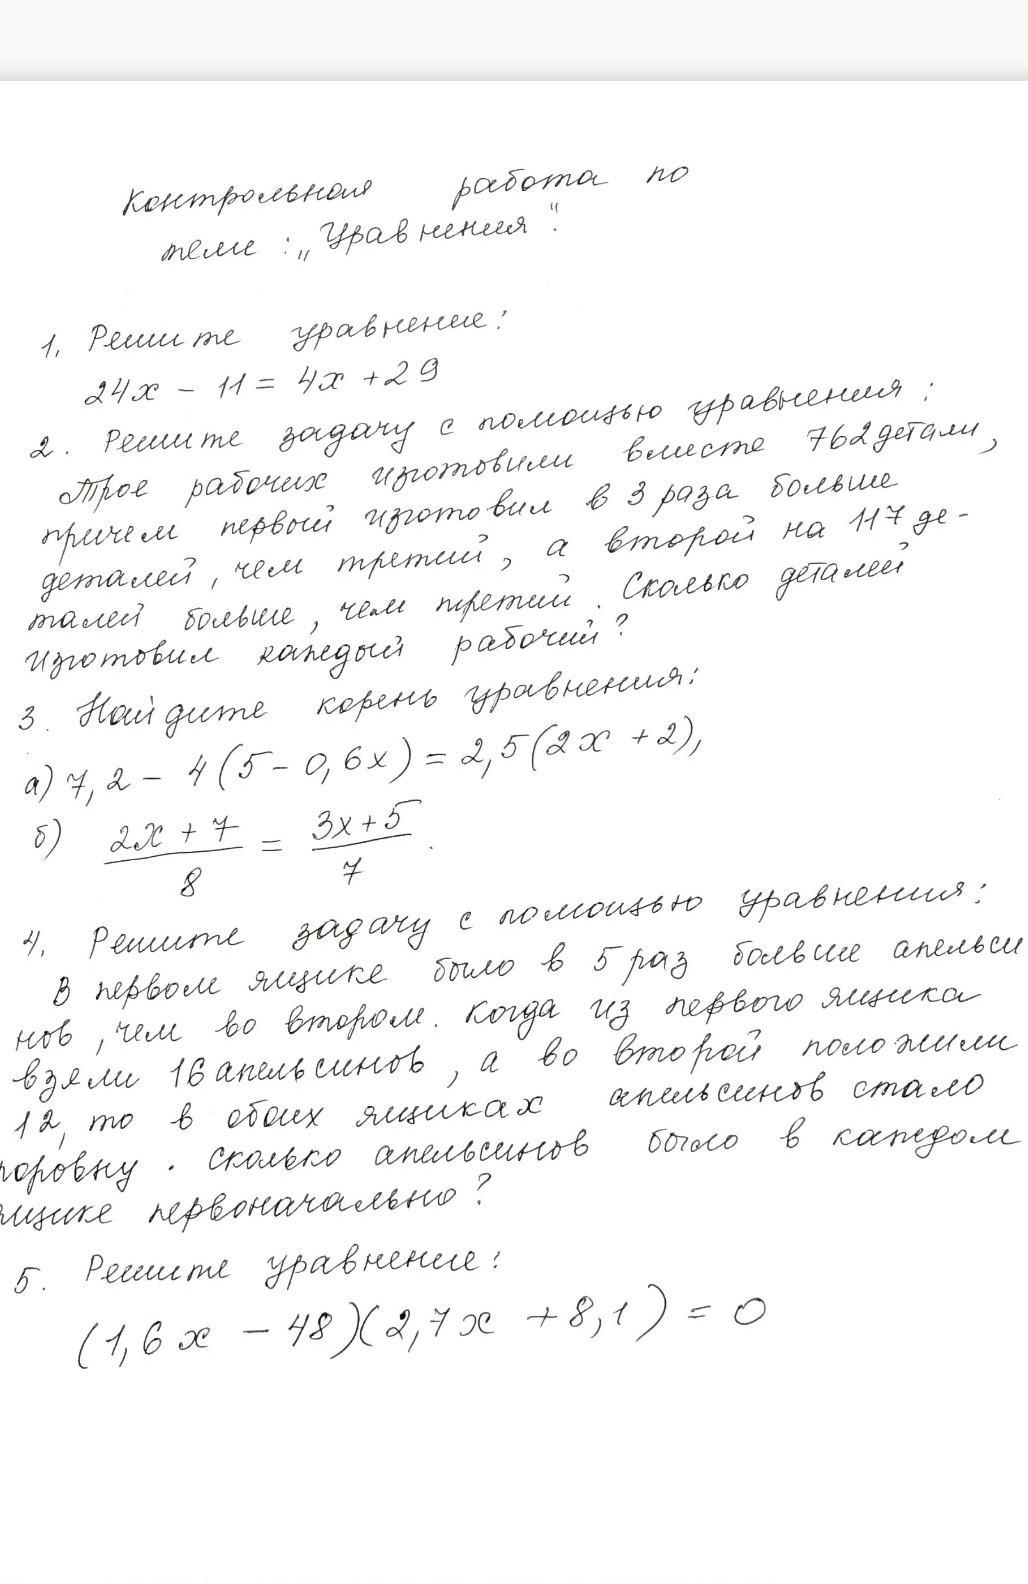 Контрольная работа по
теме: „Уравнения".
1. Решите уравнение:
24x - 11 = 4x + 29
2. Решите задачу с помощью уравнения:
Трое рабочих изготовили вместе 762 детали,
причем первый изготовил в 3 раза больше
деталей, чем третий, а второй на 117 де-
талей больше, чем третий. Сколько деталей
изготовил каждый рабочий?
3. Найдите корень уравнения:
а) 7,2 - 4(5 - 0,6x) = 2,5(2x + 2),
б) (2x + 7)/8 = (3x + 5)/7.
4. Решите задачу с помощью уравнения:
В первом ящике было в 5 раз больше апельси
нов, чем во втором. Когда из первого ящика
взяли 16 апельсинов, а во второй положили
12, то в обоих ящиках апельсинов стало
поровну. Сколько апельсинов было в каждом
ящике первоначально?
5. Решите уравнение:
(1,6x - 48)(2,7x + 8,1) = 0